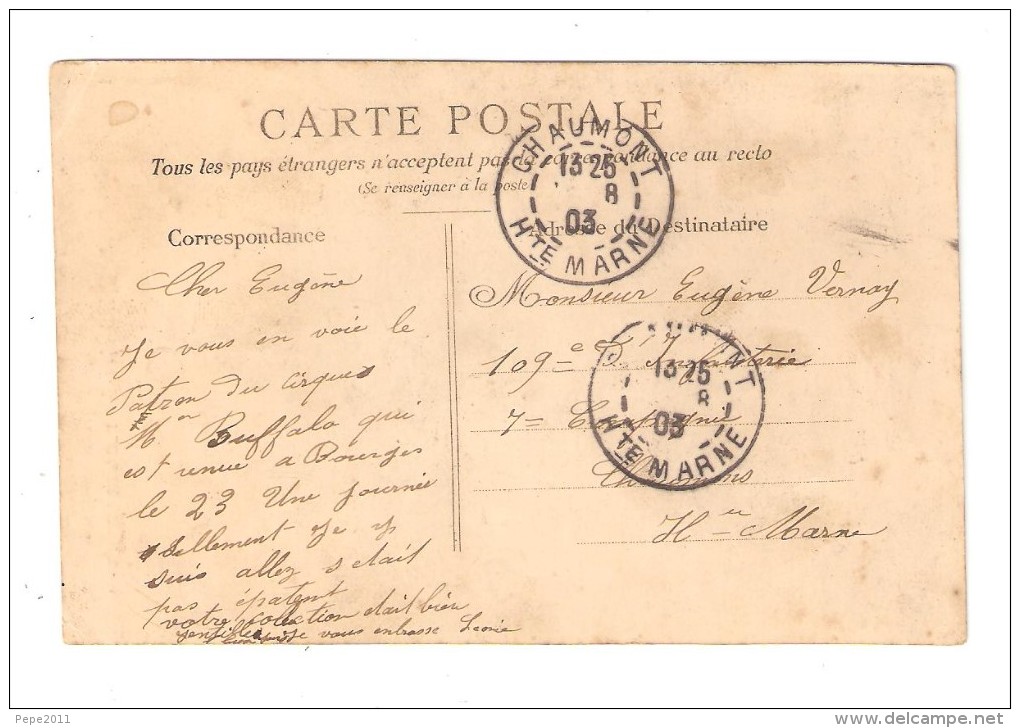 CARTE POSTALE
Tous les pays étrangers n'acceptent pas la correspondance au recto
(Se renseigner à la poste)
Correspondance
Adresse du Destinataire
Cher Eugène
Je vous en voie le
Patron du cirque
Mr Buffalo qui
est venue a Bourges
le 23 Une journée
sellement Je y
suis allez s etait
pas épatent
votre colection etait bien
vous enbrasse Leonie
Monsieur Eugène Vernoy
109e d'Infanterie
7= Compagnie
Hte Marne
CHAUMONT
13 25
8
03
HTE MARNE
13 25
8
03
HTE MARNE
Pepe2011
www.delcampe.net